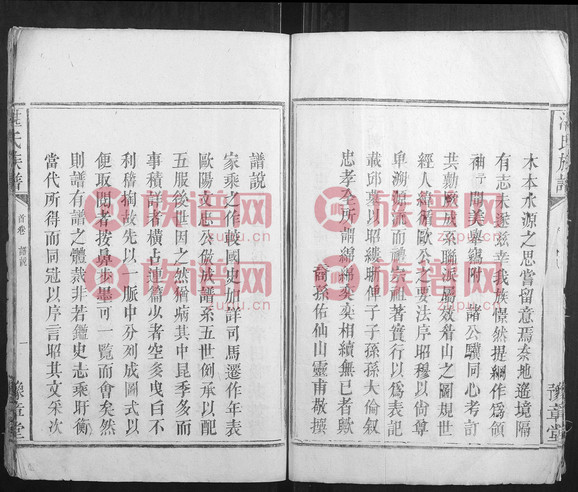 木本水源之思嘗留意焉奈地遙境隔
有志未遂茲幸我族憬然提綱作爲領
神 間美舉竊附 諸公驥同心考訂
共勷厥成系聯派屬效眉山之圖規世
經人緯循歐公之要法序昭穆以尚尊
卑溯源流而禮宗祖著實行以爲表記
載邱墓以昭縷晰俾子子孫孫大倫叙
忠孝全所謂綿綿奕奕相續無已者歟
裔孫佑仙山靈甫敬撰
氏族譜
豫章堂
譜說
家乘之作較國史加詳司馬遷作年表
歐陽文忠公倣成譜系五世倒承以配
五服後世因之然猶病其中昆季多而
事積詳者橫占連篇少者空亥曳白不
利稽搞故先以一脈中分列成圖式以
便取閱者按 步 可一覽而會矣然
則譜有譜之體裁非若鑑史志乘盱衡
當代所得而同冠以序言昭其文采次
氏族譜
首卷 譜說
一
豫章堂
族谱网
zupu.cn